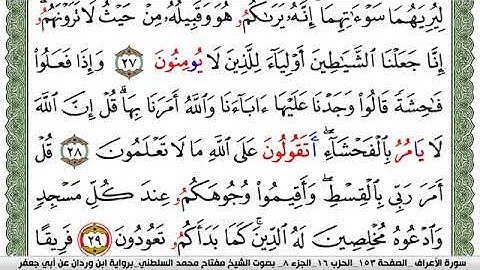 لِيُرِيَهُمَا سَوْءَٰتِهِمَا إِنَّهُۥ يَرَىٰكُمُۥ هُوَ وَقَبِيلُهُۥ مِنْ حَيْثُ لَا تَرَوْنَهُمُۥ
إِنَّا جَعَلْنَا ٱلشَّيَٰطِينَ أَوْلِيَآءَ لِلَّذِينَ لَا يُومِنُونَ ٢٧ وَإِذَا فَعَلُوا۟
فَٰحِشَةً قَالُوا۟ وَجَدْنَا عَلَيْهَا ءَابَآءَنَا وَٱللَّهُ أَمَرَنَا بِهَا قُلْ إِنَّ ٱللَّهَ
لَا يَامُرُ بِٱلْفَحْشَآءِ أَتَقُولُونَ عَلَى ٱللَّهِ مَا لَا تَعْلَمُونَ ٢٨ قُلْ
أَمَرَ رَبِّى بِٱلْقِسْطِ وَأَقِيمُوا۟ وُجُوهَكُمُۥ عِندَ كُلِّ مَسْجِدٍ
وَٱدْعُوهُ مُخْلِصِينَ لَهُ ٱلدِّينَ كَمَا بَدَأَكُمُۥ تَعُودُونَ ٢٩ فَرِيقًا
سورة الأعراف _الصفحة ١٥٣ _الحزب ١٦ _الجزء ٨_ بصوت الشيخ مفتاح محمد السلطني_برواية ابن وردان عن أبي جعفر